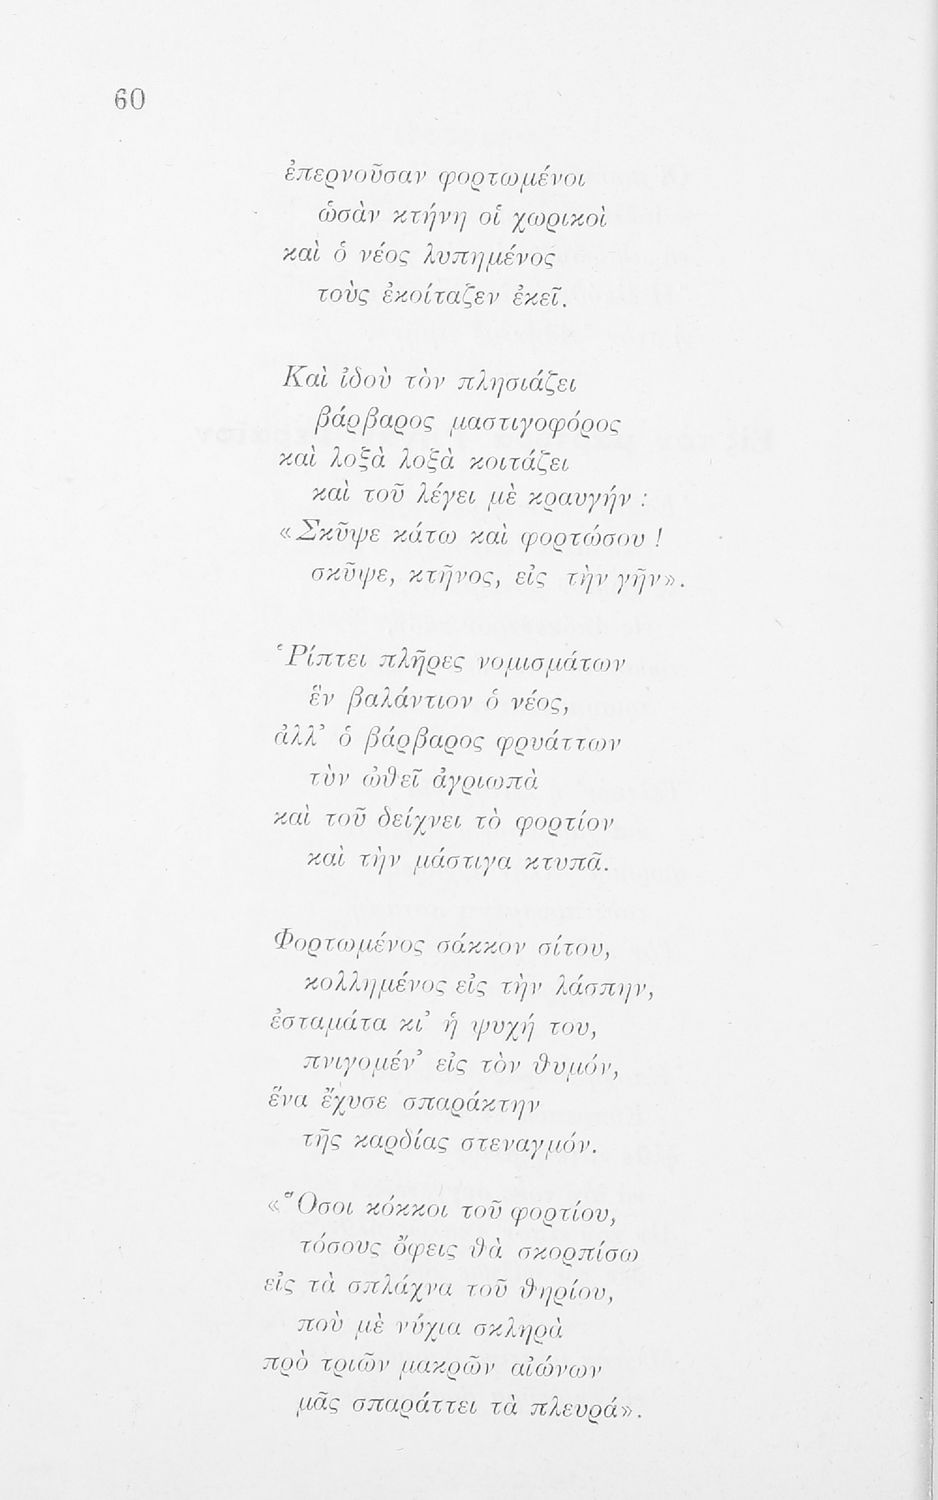 60
ἐπερνοῦσαν φορτωμένοι
ὡσὰν κτήνη οἱ χωρικοὶ
καὶ ὁ νέος λυπημένος
τοὺς ἐκοίταζεν ἐκεῖ.
Καὶ ἰδοὺ τὸν πλησιάζει
βάρβαρος μαστιγοφόρος
καὶ λοξὰ λοξὰ κοιτάζει
καὶ τοῦ λέγει μὲ κραυγήν :
«Σκῦψε κάτω καὶ φορτώσου !
σκῦψε, κτῆνος, εἰς τὴν γῆν».
Ῥίπτει πλῆρες νομισμάτων
ἓν βαλάντιον ὁ νέος,
ἀλλ' ὁ βάρβαρος φρυάττων
τὸν ὠθεῖ ἀγριωπὰ
καὶ τοῦ δείχνει τὸ φορτίον
καὶ τὴν μάστιγα κτυπᾶ.
Φορτωμένος σάκκον σίτου,
κολλημένος εἰς τὴν λάσπην,
ἐσταμάτα κι' ἡ ψυχή του,
πνιγομέν' εἰς τὸν θυμόν,
ἕνα ἔχυσε σπαράκτην
τῆς καρδίας στεναγμόν.
«Ὅσοι κόκκοι τοῦ φορτίου,
τόσους ὄφεις θὰ σκορπίσω
εἰς τὰ σπλάχνα τοῦ θηρίου,
ποὺ μὲ νύχια σκληρὰ
πρὸ τριῶν μακρῶν αἰώνων
μᾶς σπαράττει τὰ πλευρά».